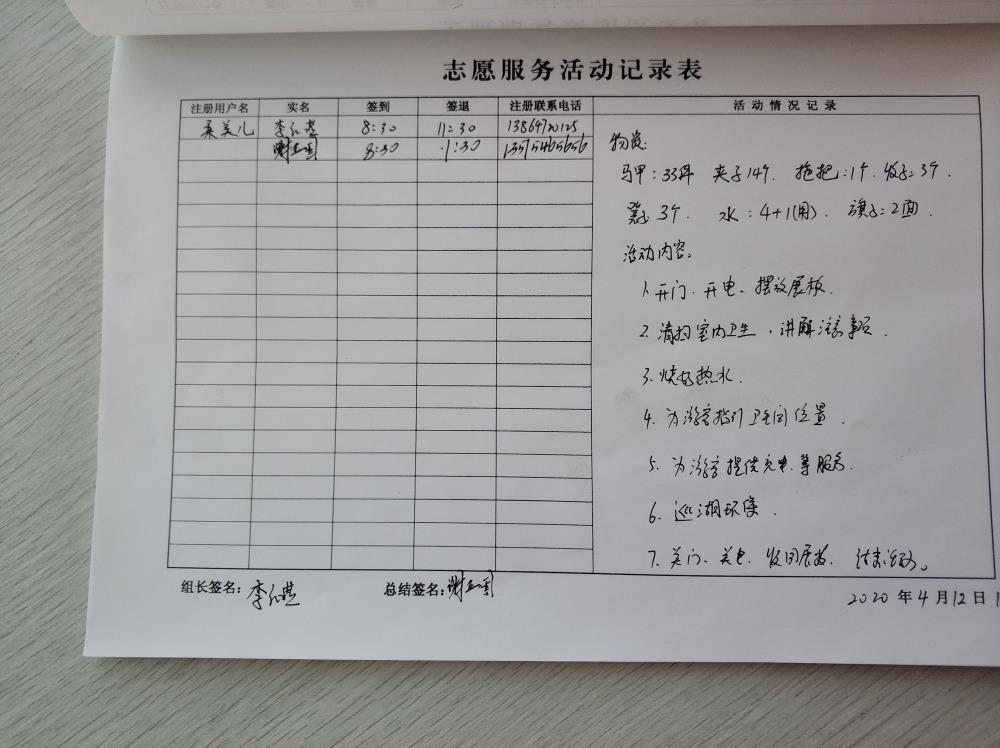 志愿服务活动记录表
注册用户名 实名 签到 签退 注册联系电话 活动情况记录
美儿 李 8:30 11:30 13864720125
谢 8:30 11:30 13515465656
物资:
马甲:33件 夹子14个. 拖把:1个. 3个.
凳子3个. 水:4+1(用). 旗子:2面.
活动内容:
1. 开门、开电、摆放展板.
2. 清扫室内卫生,讲解注意事项.
3. 烧好热水.
4. 为游客指引卫生间位置.
5. 为游客提供充电等服务.
6. 巡湖环保.
7. 关门、关电、收回展板、结束活动。
组长签名:李 总结签名:谢
2020年4月12日